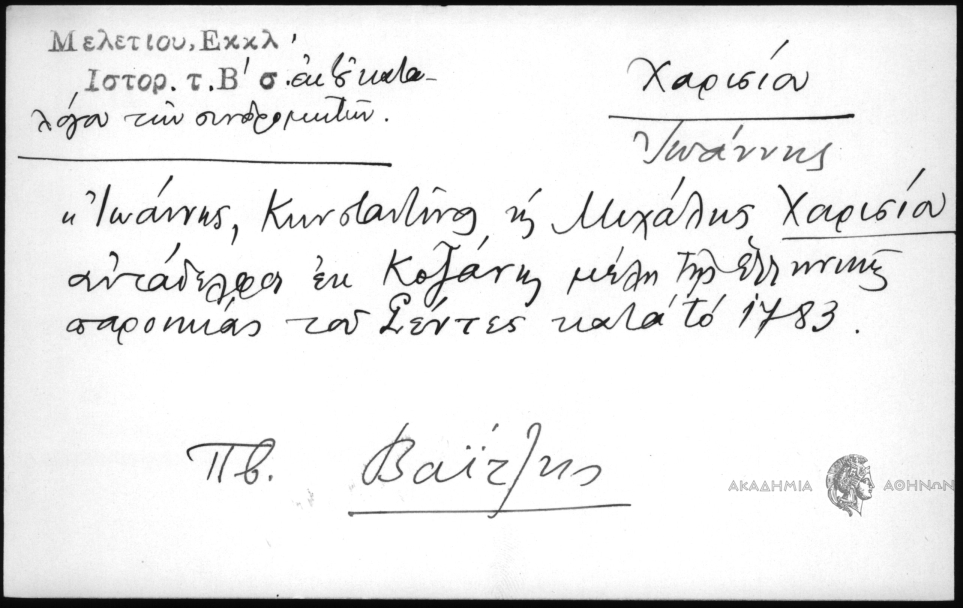 Μελετίου, Εκκλ.
Ιστορ. τ. Β' σ. ἐκ τοῦ κατα-
λόγου τῶν συνδρομητῶν.
Χαρισίου
Ἰωάννης
"Ἰωάννης, Κωνσταντῖνος καὶ Μιχάλης Χαρισίου
αὐτάδελφοι ἐκ Κοζάνης μέλη τῆς ἑλληνικῆς
παροικίας τοῦ Σέντες κατὰ τὸ 1783.
Πβ. Βαϊτζης
ΑΚΑΔΗΜΙΑ ΑΘΗΝΩΝ